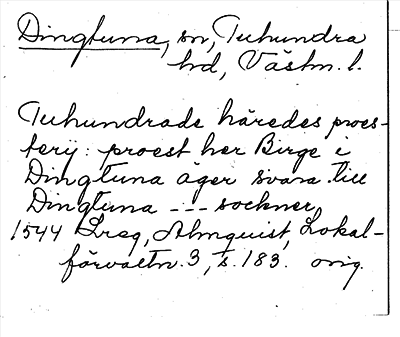 Dingtuna, sn, Tuhundra
hd, Västm. l.
Tuhundrade häredes proes-
terij: proest her Birge i
Dingtuna äger svara till
Dingtuna --- sockner
1544 Lreg, Almquist, Lokal-
förvaltn. 3, s. 183. orig.